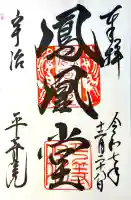 奉拝
令和七年
十二月二十八日
鳳凰堂
宇治
平等院